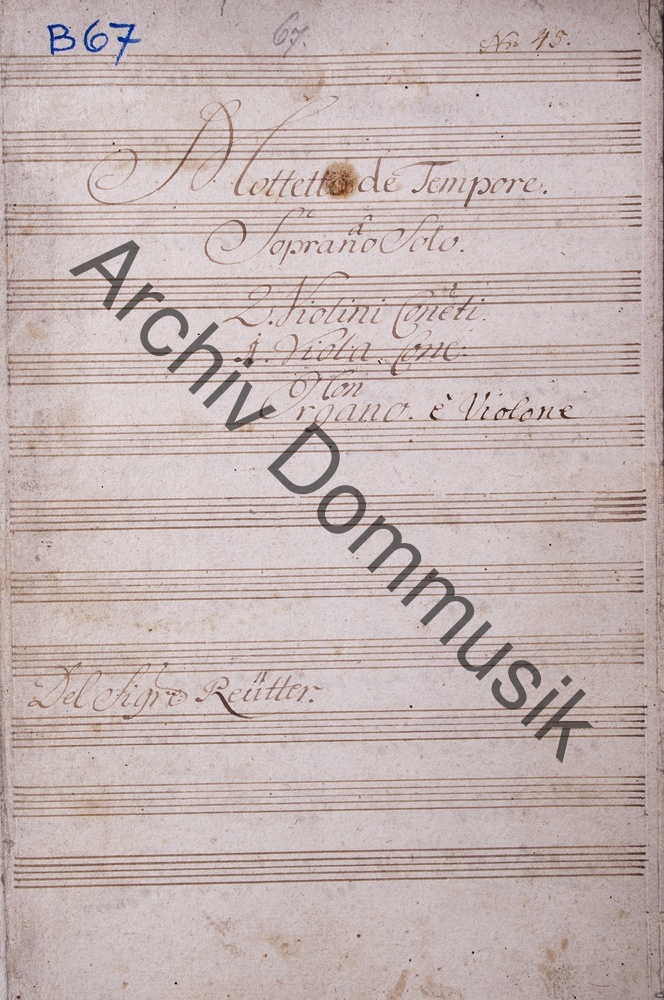 B67
67.
No 45.
Mottetto de Tempore.
Soprano Solo.
2. Violini Concti.
1. Viola Conc:
Con
Organo. è Violone
Del Sigre Reütter.
Archiv Dommusik